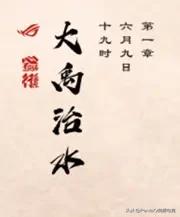 第一章
六月九日
十九时
大禹治水